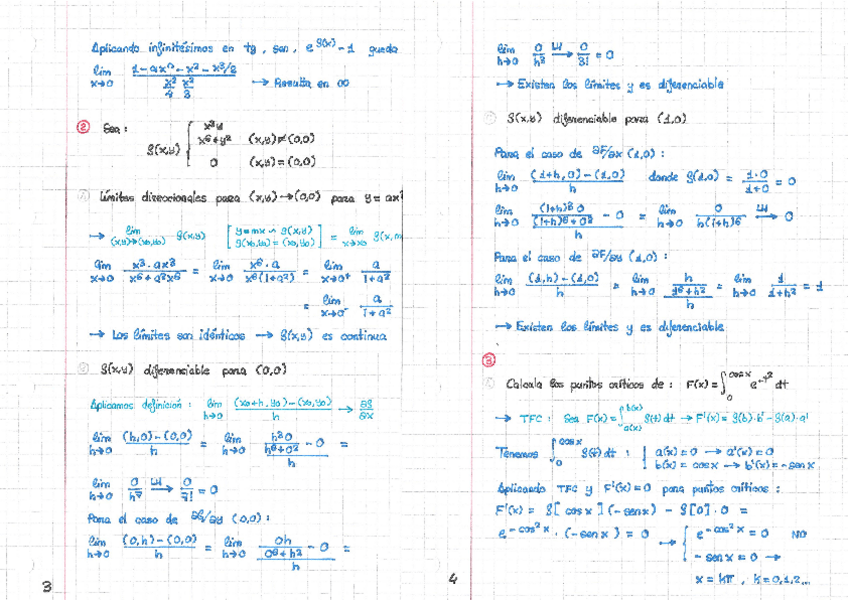 Aplicando infinitésimos en tg, sen, e^g(x) - 1 queda
lim x→0 (1 - ax^n - x² - x³/2) / (x²/4 x²/3) → Resulta en ∞
② Sea:
f(x,y) { x³y / (x⁶+y²) (x,y) ≠ (0,0)
0 (x,y) = (0,0)
Límites direccionales para (x,y)→(0,0) para y = ax³
→ lim (x,y)→(x₀,y₀) f(x,y) [ y=mx ∽ f(x,y)
f(x₀,y₀) = (x₀,y₀) ] = lim x→x₀ f(x,m
lim x→0 (x³·ax³) / (x⁶+a²x⁶) = lim x→0 (x⁶·a) / (x⁶(1+a²)) = lim x→0⁺ a / (1+a²)
= lim x→0⁻ a / (1+a²)
→ Los límites son idénticos → f(x,y) es continua
f(x,y) diferenciable para (0,0)
Aplicamos definición: lim h→0 ((x₀+h,y₀) - (x₀,y₀)) / h → ∂f/∂x
lim h→0 ((h,0) - (0,0)) / h = lim h→0 (h³0 / (h⁶+0²) - 0) / h =
lim h→0 0 / h⁷ → 0 / 7! = 0
Para el caso de ∂f/∂y (0,0):
lim h→0 ((0,h) - (0,0)) / h = lim h→0 (0h / (0⁶+h²) - 0) / h =
3
lim h→0 0 / h² → 0 / 3! = 0
→ Existen los límites y es diferenciable
f(x,y) diferenciable para (1,0)
Para el caso de ∂F/∂x (1,0):
lim h→0 ((1+h,0) - (1,0)) / h donde f(1,0) = 1·0 / (1+0) = 0
lim h→0 ((1+h)³0 / ((1+h)⁶+0²) - 0) / h = lim h→0 0 / h(1+h)⁶ → 0
Para el caso de ∂F/∂y (1,0):
lim h→0 ((1,h) - (1,0)) / h = lim h→0 (h / (1⁶+h²)) / h = lim h→0 1 / (1+h²) = 1
→ Existen los límites y es diferenciable
③
Calcula los puntos críticos de: F(x) = ∫₀^cosx e^-t² dt
→ TFC: Sea F(x) = ∫_a(x)^b(x) f(t) dt → F'(x) = f(b)·b' - f(a)·a'
Tenemos ∫₀^cosx f(t) dt : { a(x) = 0 → a'(x) = 0
b(x) = cosx → b'(x) = -senx
Aplicando TFC y F'(x)=0 para puntos críticos:
F'(x) = f[cosx](-senx) - f[0]·0 =
e^-cos²x · (-senx) = 0 → { e^-cos²x = 0 NO
-senx = 0 →
x = kπ, k = 0,1,2...
4